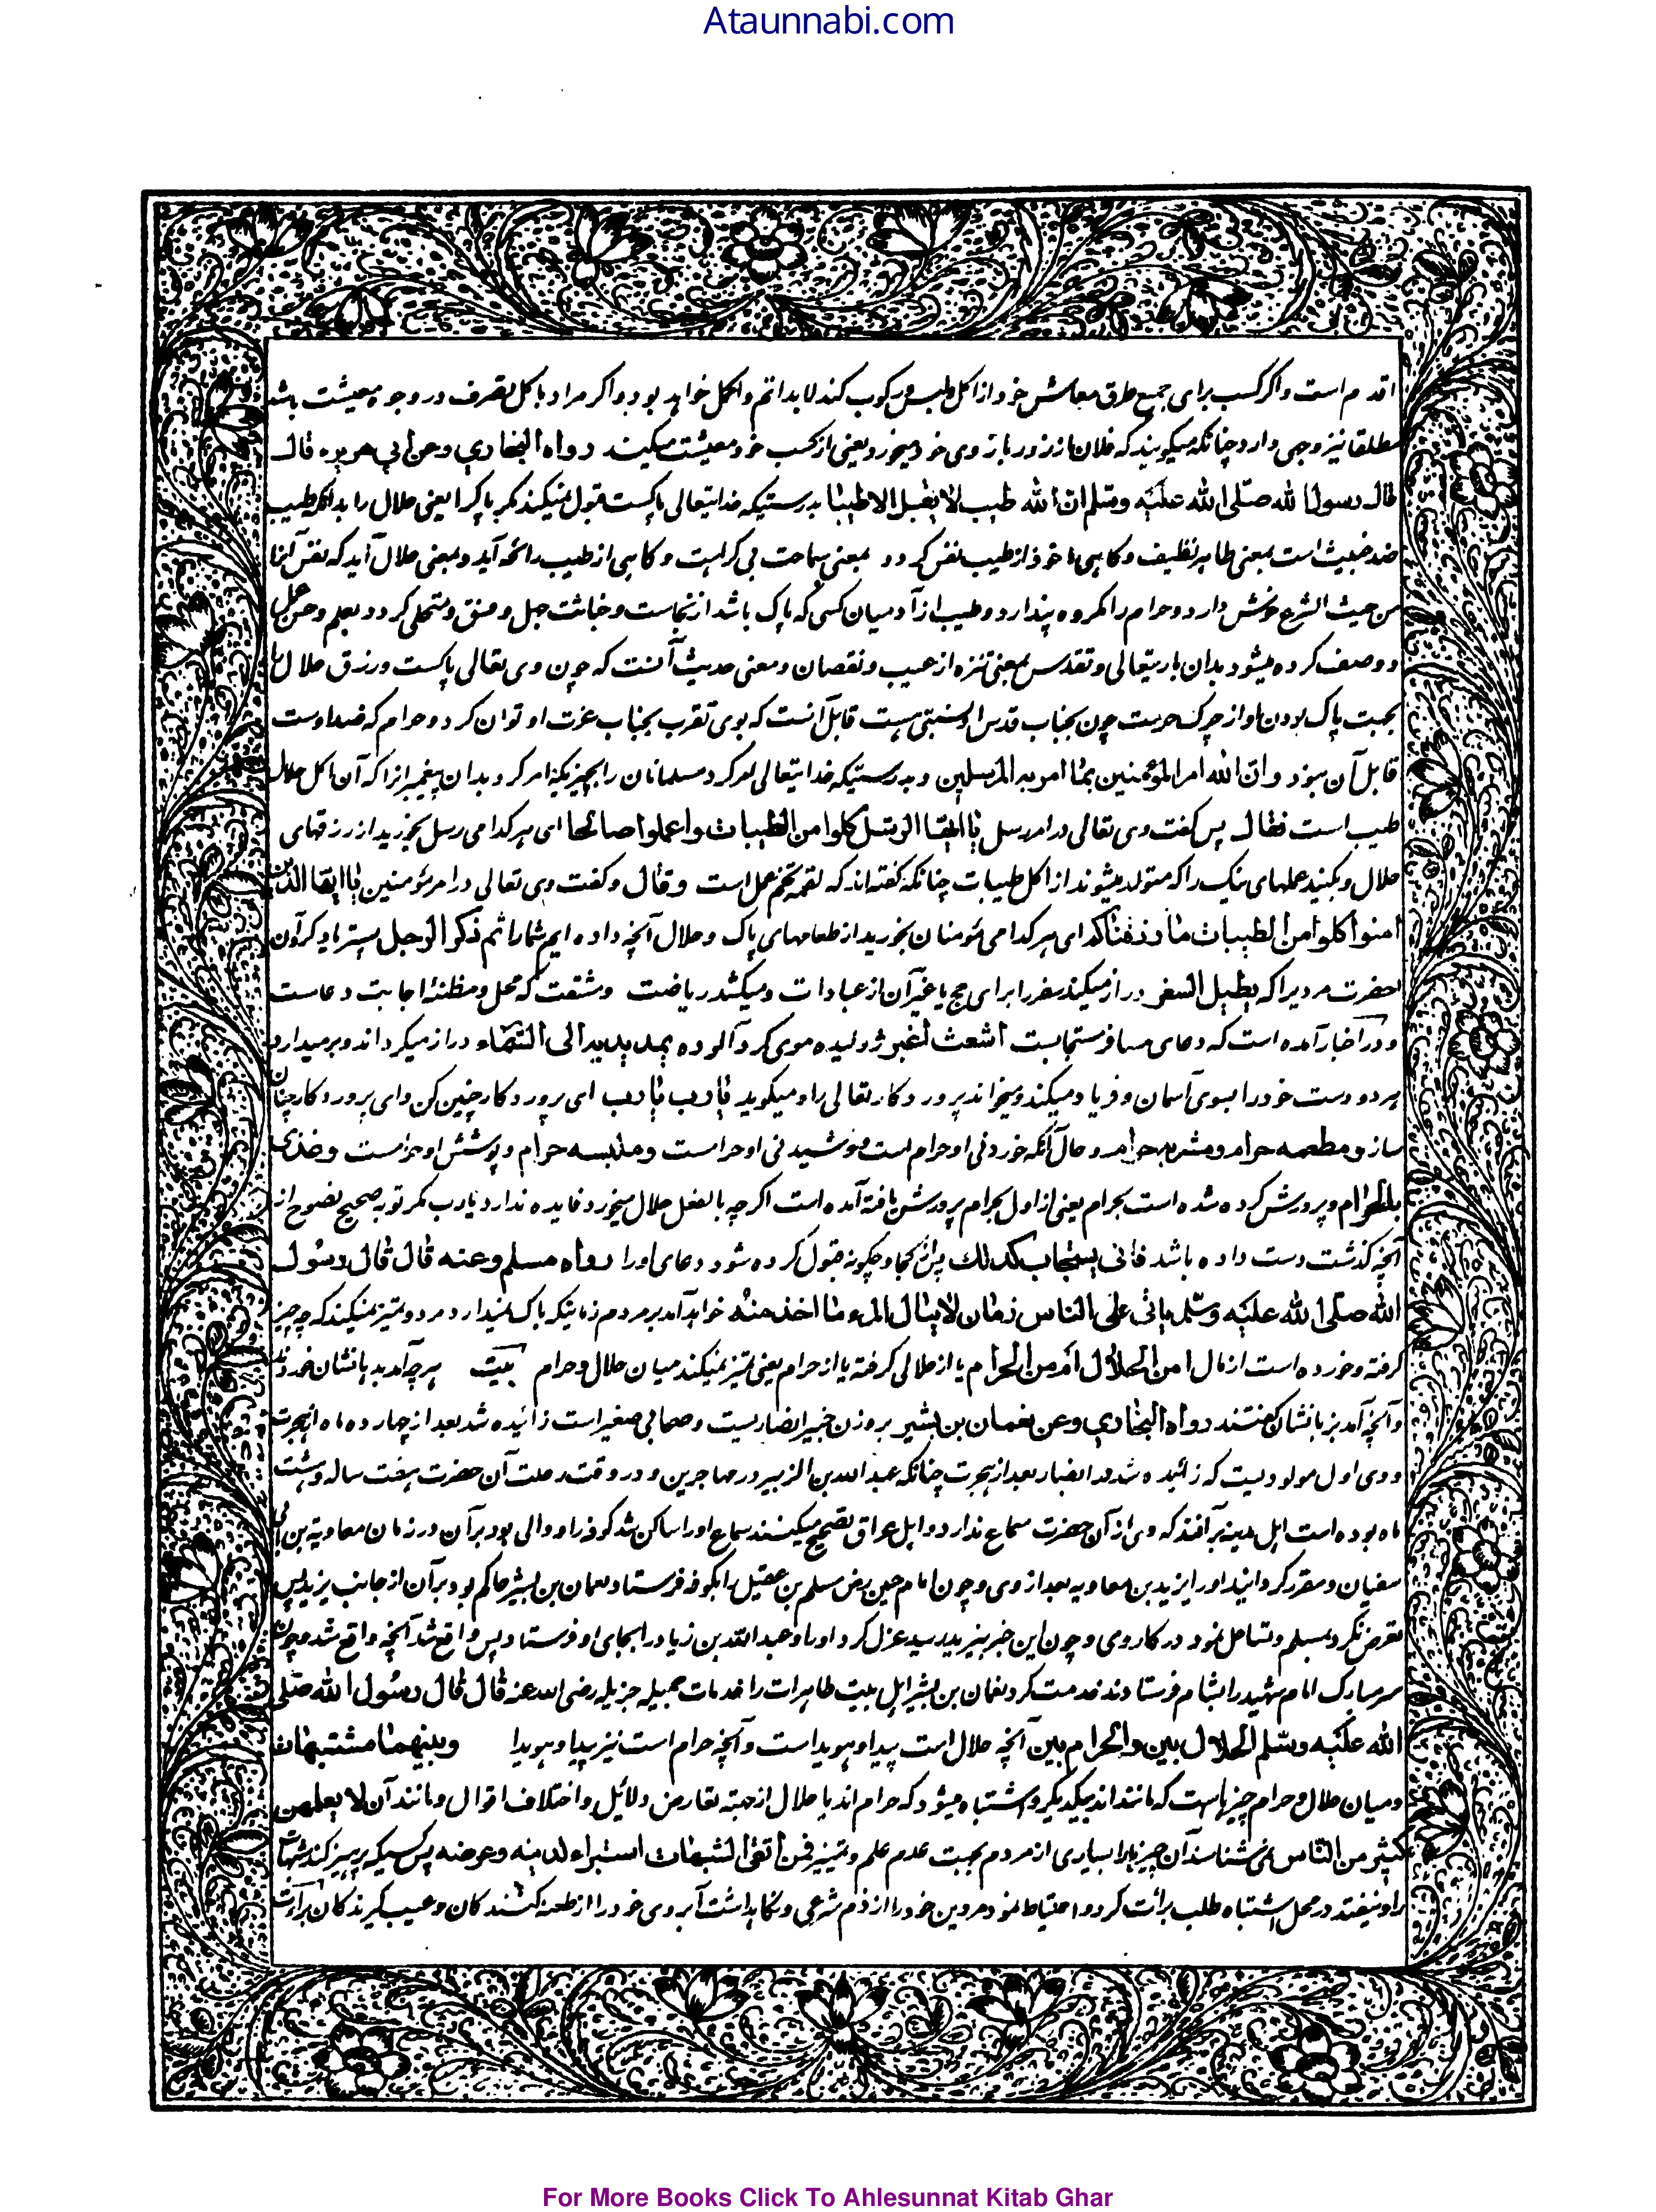 Ataunnabi.com
اقدم است واکر کسب برای جمیع طرق معاش خود از اکل و لبس و رکوب کند لابد اتم و اکمل خواهد بود و اکر مراد باکل تصرف در وجوه معیشت باشد
مطلقا نیز وجهی دارد چنانکه میکویند که فلان از زور بازوی خود میخورد یعنی از کسب خود معیشت میکند رواه البخاری وعن ابی هریره قال
قال رسول الله صلی الله علیه وسلم ان الله طیب لا یقبل الا طیبا بدرستیکه خدایتعالی پاکست قبول نمیکند مکر پاک را یعنی حلال را بدانکه طیب
ضد خبیث است بمعنی طاهر نظیف و کاهی ماخوذ از طیب نفس کردد بمعنی سماحت بی کراهت و کاهی از طیب رائحه آید و بمعنی حلال آید که نفس آنرا
من حیث الشرع خوش دارد و حرام را مکروه پندارد و طیب از آدمیان کسی که پاک باشد از نجاست و خباثت جهل و فسق و متحلی کردد بعلم و حسن عمل
و وصف کرده میشود بدان باریتعالی و تقدس بمعنی تنزه از عیب و نقصان و معنی حدیث آنست که چون وی تعالی پاکست و رزق حلال را
بجهت پاک بودن او از چرک حرمت چون بجناب قدس او نسبتی هست قابل آنست که بوی تقرب بجناب عزت او توان کرد و حرام که ضد اوست
قابل آن نبود وان الله امر المؤمنین بما امر به المرسلین و بدرستیکه خدایتعالی امر کرد مسلمانان را بچیزیکه امر کرد بدان پیغمبرانرا که آن اکل حلال
طیب است فقال پس کفت وی تعالی در امر رسل یا ایها الرسل کلوا من الطیبات واعملوا صالحا ای هر کدامی رسل بخورید از رزقهای
حلال و بکنید عملهای نیک را که متولد میشوند از اکل طیبات چنانکه کفته اند که لقمه تخم عمل است وقال و کفت وی تعالی در امر مؤمنین یا ایها الذین
امنوا کلوا من الطیبات ما رزقناکم ای هر کدامی مؤمنان بخورید از طعامهای پاک و حلال آنچه داده ایم شما را ثم ذکر الرجل پستر یاد کرد آن
حضرت مردیرا که یطیل السفر دراز میکند سفر را برای حج یا غیر آن از عبادات و میکشد ریاضت و مشقت که محل و مظنۀ اجابت دعاست
و در اخبار آمده است که دعای مسافر مستجابست اشعث اغبر ژولیده موی کرد آلوده یمد یدیه الی السماء دراز میکرداند و برمیدارد
هر دو دست خود را بسوی آسمان و فریاد میکند و میخواند پروردکار تعالی را و میکوید یا رب یا رب ای پروردکار چنین کن و ای پروردکار چنان
ساز و مطعمه حرام و مشربه حرام و حال آنکه خوردنی او حرام است و نوشیدنی او حرامست و ملبسه حرام و پوشش او حرامست وغذی
بالحرام و پرورش کرده شده است بحرام یعنی از اول بحرام پرورش یافته آمده است اکرچه بالفعل حلال میخورد فایده ندارد یا رب مکر توبه صحیح نصوح از
آنچه کذشت دست داده باشد فانی یستجاب لذلك پس از کجا و چکونه قبول کرده شود دعای او را رواه مسلم وعنه قال قال رسول
الله صلی الله علیه وسلم یاتی علی الناس زمان لا یبالی المرء ما اخذ منه خواهد آمد بر مردم زمانیکه باک نمیدارد مرد و تمیز نمیکند که چه چیز
کرفته و خورده است از مال امن الحلال ام من الحرام یا از حلالی کرفته یا از حرام یعنی تمیز نمیکند میان حلال و حرام بیت هر چه آمد بدهانشان خوردند
و آنچه آمد بزبانشان کفتند رواه البخاری وعن نعمان بن بشیر بر وزن خبیر انصاریست و صحابی صغیر است زائیده شد بعد از چهارده ماه از هجرت
و وی اول مولودیست که زائیده شد در انصار بعد از هجرت چنانکه عبد الله بن الزبیر در مهاجرین و در وقت رحلت آن حضرت هفت ساله و هشت
ماه بوده است اهل مدینه برآنند که وی از آن حضرت سماع ندارد و اهل عراق تصحیح میکنند سماع او را ساکن شد کوفه را و والی بود بر آن در زمان معاویة بن ابی
سفیان و مقرر کردانید او را یزید بن معاویه بعد از وی و چون امام حسین رض مسلم بن عقیل را بکوفه فرستاد نعمان بن بشیر حاکم بود بر آن از جانب یزید پس
تعرض نکرد بمسلم و تساهل نمود در کار وی و چون این خبر بیزید رسید عزل کرد او را و عبد الله بن زیاد را بجای او فرستاد پس واقع شد آنچه واقع شد و چون
سر مبارک امام شهید را بشام فرستادند خدمت کرد نعمان بن بشیر اهل بیت طاهرات را خدمات جمیله جزیله رضی الله عنه قال قال رسول الله صلی
الله علیه وسلم الحلال بین والحرام بین آنچه حلال است پیدا و هویداست و آنچه حرام است نیز پیدا و هویدا وبینهما مشتبهات
و میان حلال و حرام چیزهاست که مانند اند بیکدیکر و اشتباه میشود که حرام اند یا حلال از جهته تعارض دلائل و اختلاف اقوال و مانند آن لا یعلمهن
کثیر من الناس نمی شناسند آن چیزها را بسیاری از مردم بجهت عدم علم و تمیز فمن اتقی الشبهات استبراء لدینه وعرضه پس کسیکه پرهیز کند شبهات
را و نیفتد در محل اشتباه طلب برائت کرد و احتیاط نمود مر دین خود را از ذم شرعی و نکاهداشت آبروی خود را از طعنه کنندکان و عیب کیرندکان
For More Books Click To Ahlesunnat Kitab Ghar